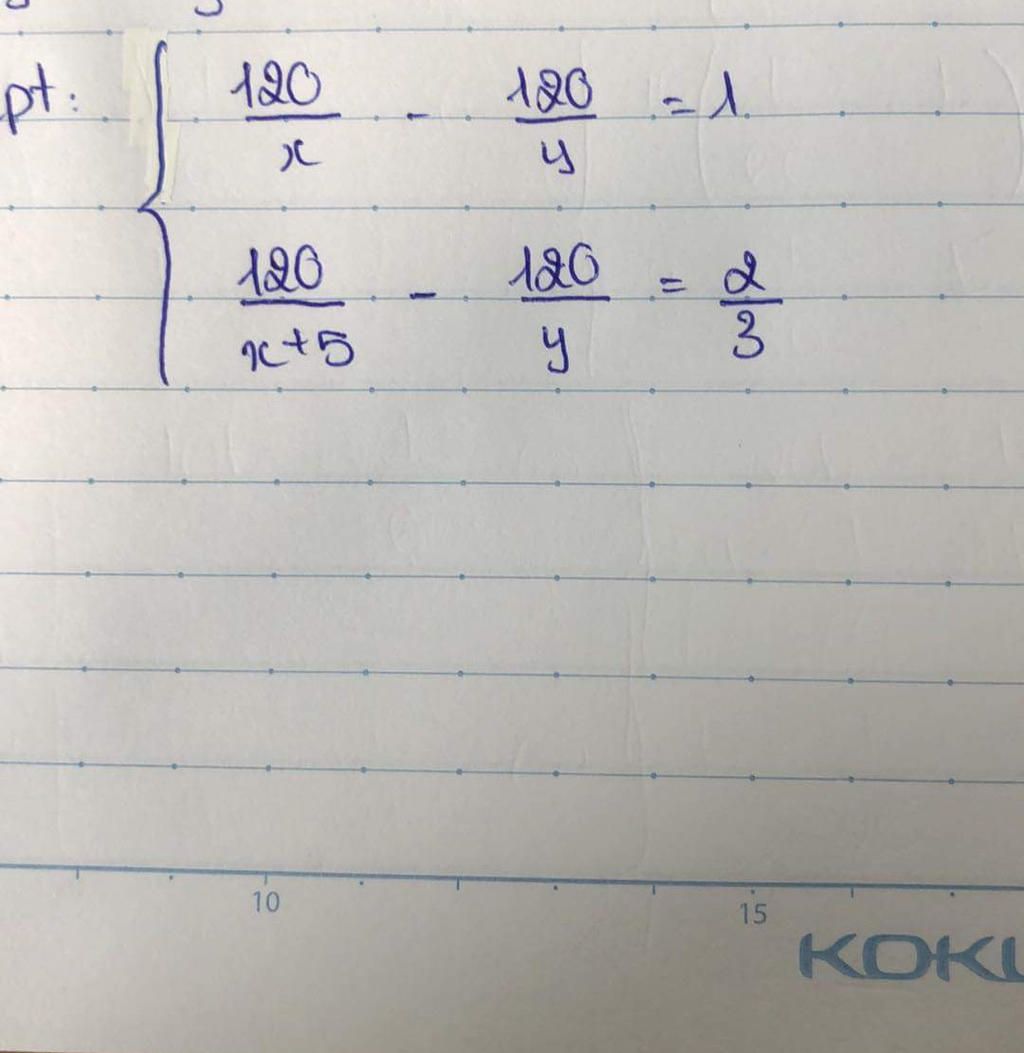 pt: { 120/x - 120/y = 1
120/x+5 - 120/y = 2/3
10 15
KOKU